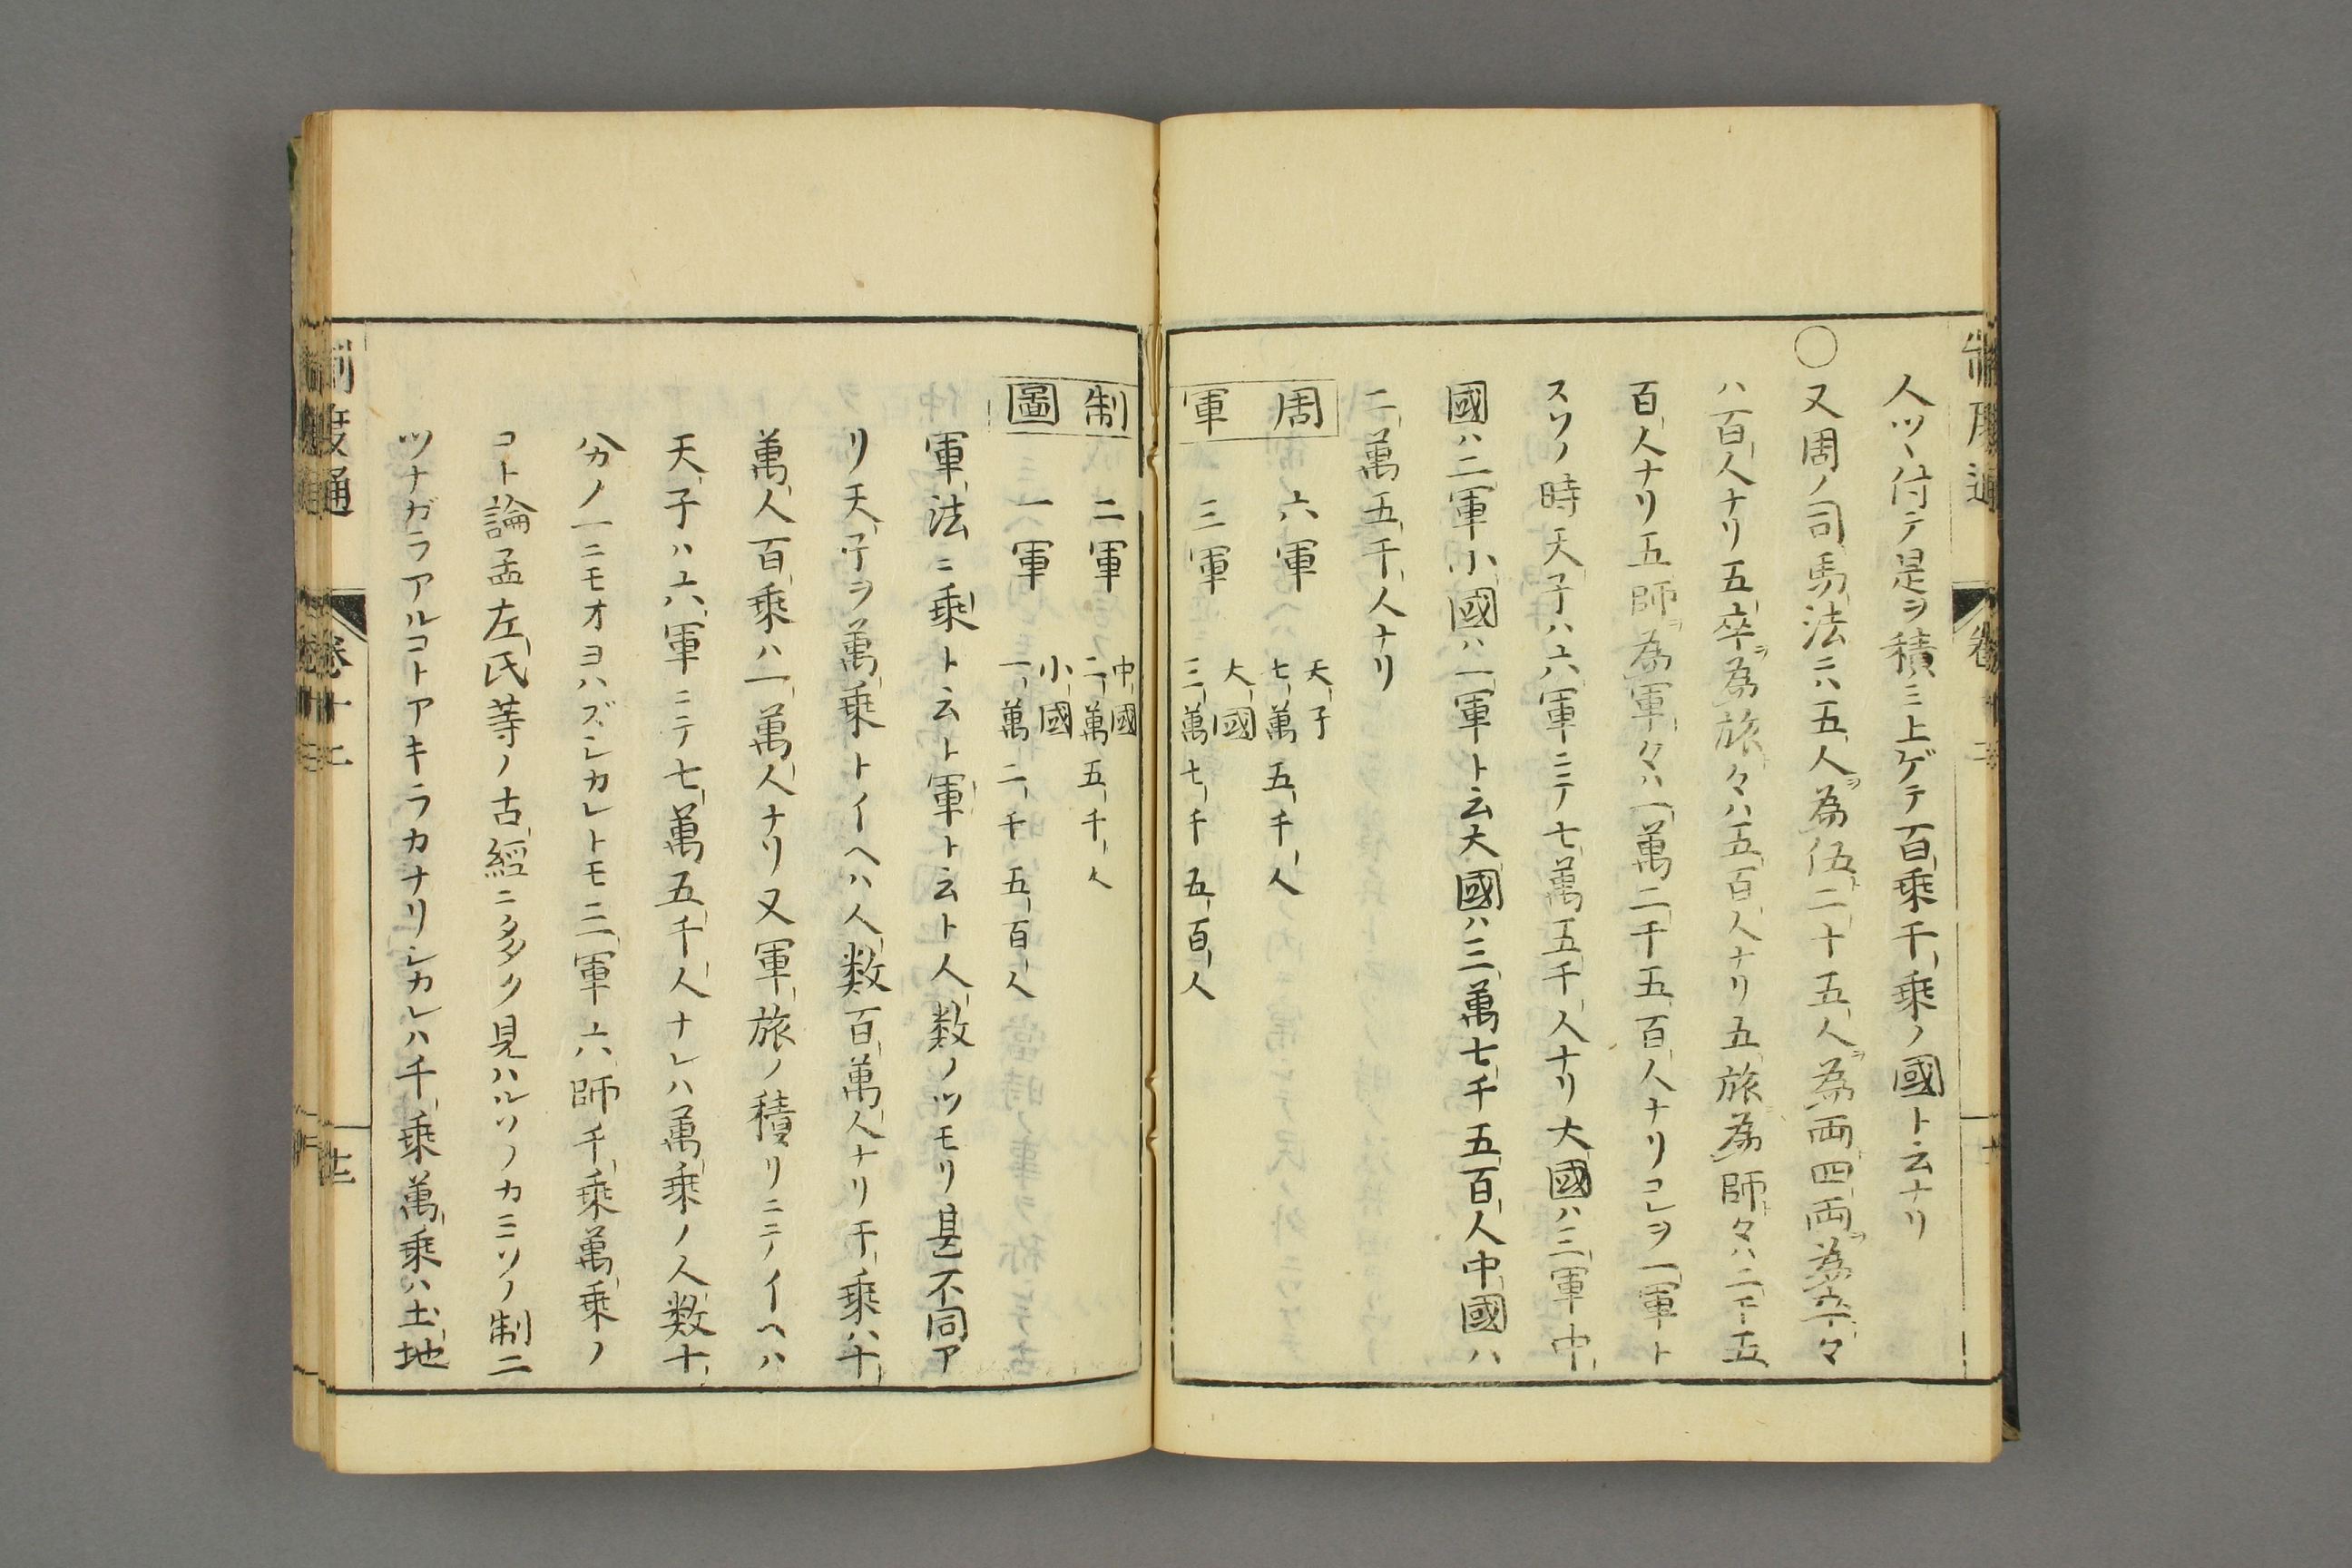 人ツヽ付テ是ヲ積ミ上ゲテ百乘千乘ノ國ト云ナリ
〇又周ノ司馬法ニハ五人為伍二十五人為両四両為卒々
ハ百人ナリ五卒為旅々ハ五百人ナリ五旅為師々ハ二千五
百人ナリ五師為軍々ハ一萬二千五百人ナリコレヲ一軍ト
スソノ時天子ハ六軍ニテ七萬五千人ナリ大國ハ三軍中
國ハ二軍小國ハ一軍ト云大國ハ三萬七千五百人中國ハ
二萬五千人ナリ
周 六軍 天子 七萬五千人
軍 三軍 大國 三萬七千五百人
制 二軍 中國 二萬五千人
圖 一軍 小國 一萬二千五百人
軍法ニ乘ト云ト軍ト云ト人数ノツモリ甚不同ア
リ天子ヲ萬乘トイヘハ人数百萬人ナリ千乘ハ十
萬人百乘ハ一萬人ナリ又軍旅ノ積リニテイヘハ
天子ハ六軍ニテ七萬五千人ナレハ萬乘ノ人数十
分ノ一ニモオヨハズシカレトモ三軍六師千乘萬乘ノ
コト論孟左氏等ノ古經ニ多ク見ハルソノカミソノ制二
ツナガラアルコトアキラカナリシカレハ千乘萬乘ハ土地
制度通 卷十二